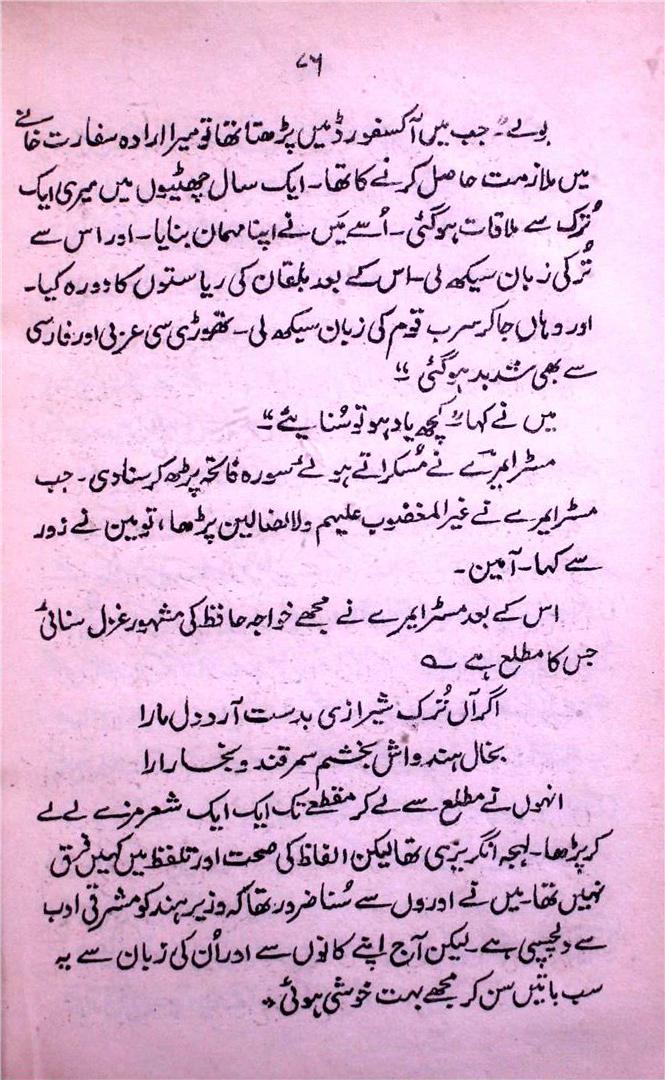 ۷۶
بولے۔" جب میں آکسفورڈ میں پڑھتا تھا تو میرا ارادہ سفارت خانے
میں ملازمت حاصل کرنے کا تھا۔ ایک سال چھٹیوں میں میری ایک
تُرک سے ملاقات ہوگئی۔ اُسے میَں نے اپنا مہمان بنایا۔ اور اس سے
تُرکی زبان سیکھ لی۔ اس کے بعد بلقان کی ریاستوں کا دورہ کیا۔
اور وہاں جاکر سرب قوم کی زبان سیکھ لی۔ تھوڑی سی عربی اور فارسی
سے بھی شد بد ہوگئی "
میں نے کہا " کچھ یاد ہو تو سُنایئے "
مسٹر ایمرے نے مُسکراتے ہوئے سورہ فاتحہ پڑھ کر سنا دی۔ جب
مسٹر ایمرے نے غیر المغضوب علیہم ولا لضالین پڑھا، تو مین نے زور
سے کہا۔ آمین۔
اس کے بعد مسٹر ایمرے نے مجھے خواجہ حافظ کی مشہور غزل سنائی
جس کا مطلع ہے ؎
اگر آں تُرک شیرازی بدست آرد دل مارا
بخال ہندواش بخشم سمرقند و بخارا را
انہوں نے مطلع سے لے کر مقطع تک ایک ایک شعر مزے لے لے
کر پڑھا۔ لہجہ انگریزی تھا لیکن الفاظ کی صحت اور تلفظ میں کہیں فرق
نہیں تھا۔ میں نے اوروں سے سُنا ضرور تھا کہ وزیر ہند کو مشرقی ادب
سے دلچسپی ہے۔ لیکن آج اپنے کانوں سے اور اُن کی زبان سے یہ
سب باتیں سن کر مجھے بہت خوشی ہوئی *